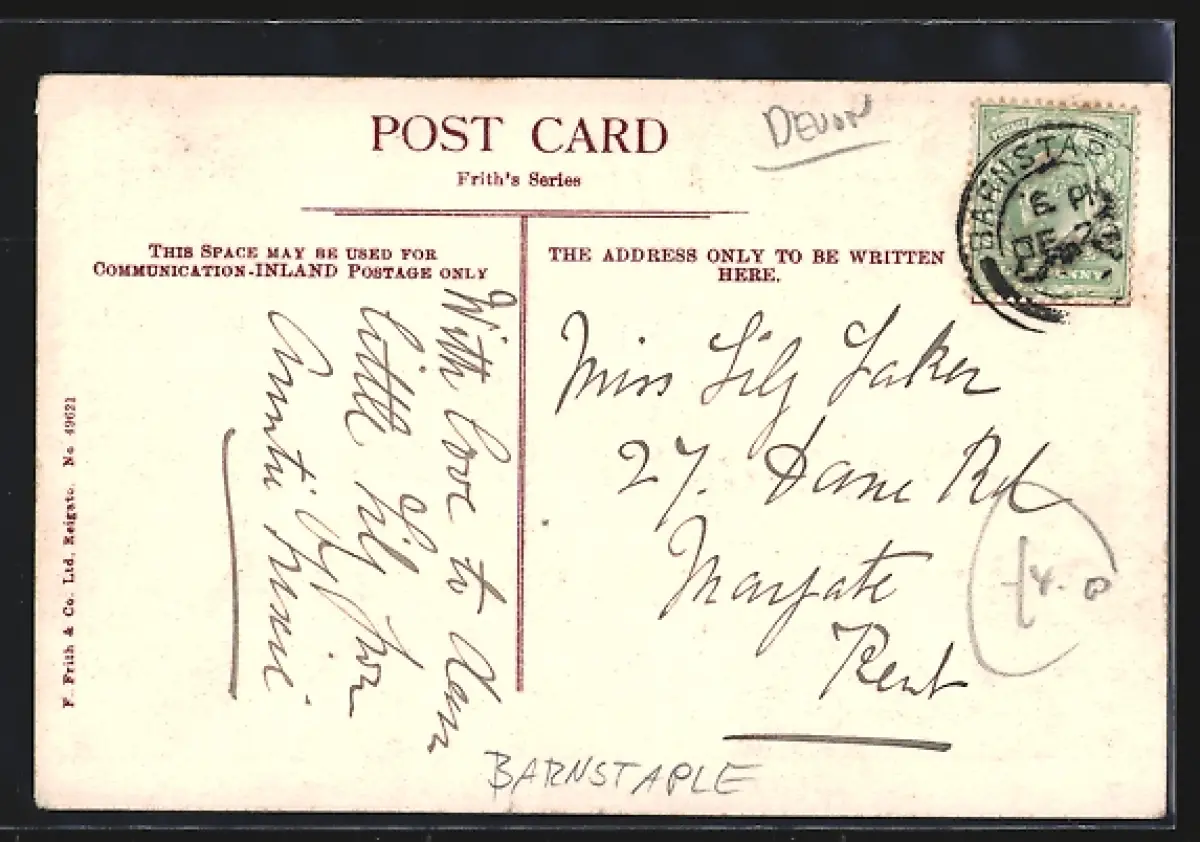 POST CARD
Frith's Series
DEVON
BARNSTAP
PM
THIS SPACE MAY BE USED FOR
COMMUNICATION-INLAND POSTAGE ONLY
THE ADDRESS ONLY TO BE WRITTEN
HERE.
With love to dear
little Lily from
Auntie
Miss Lily Laker
27. Dane Rd
Margate
Kent
BARNSTAPLE
F. Frith & Co. Ltd. Reigate. No 49621